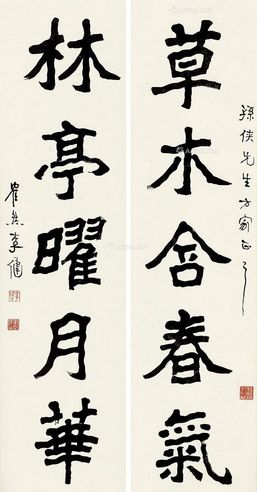 草木含春氣
孫俠先生方家正之
林亭曜月華
瞿然李健